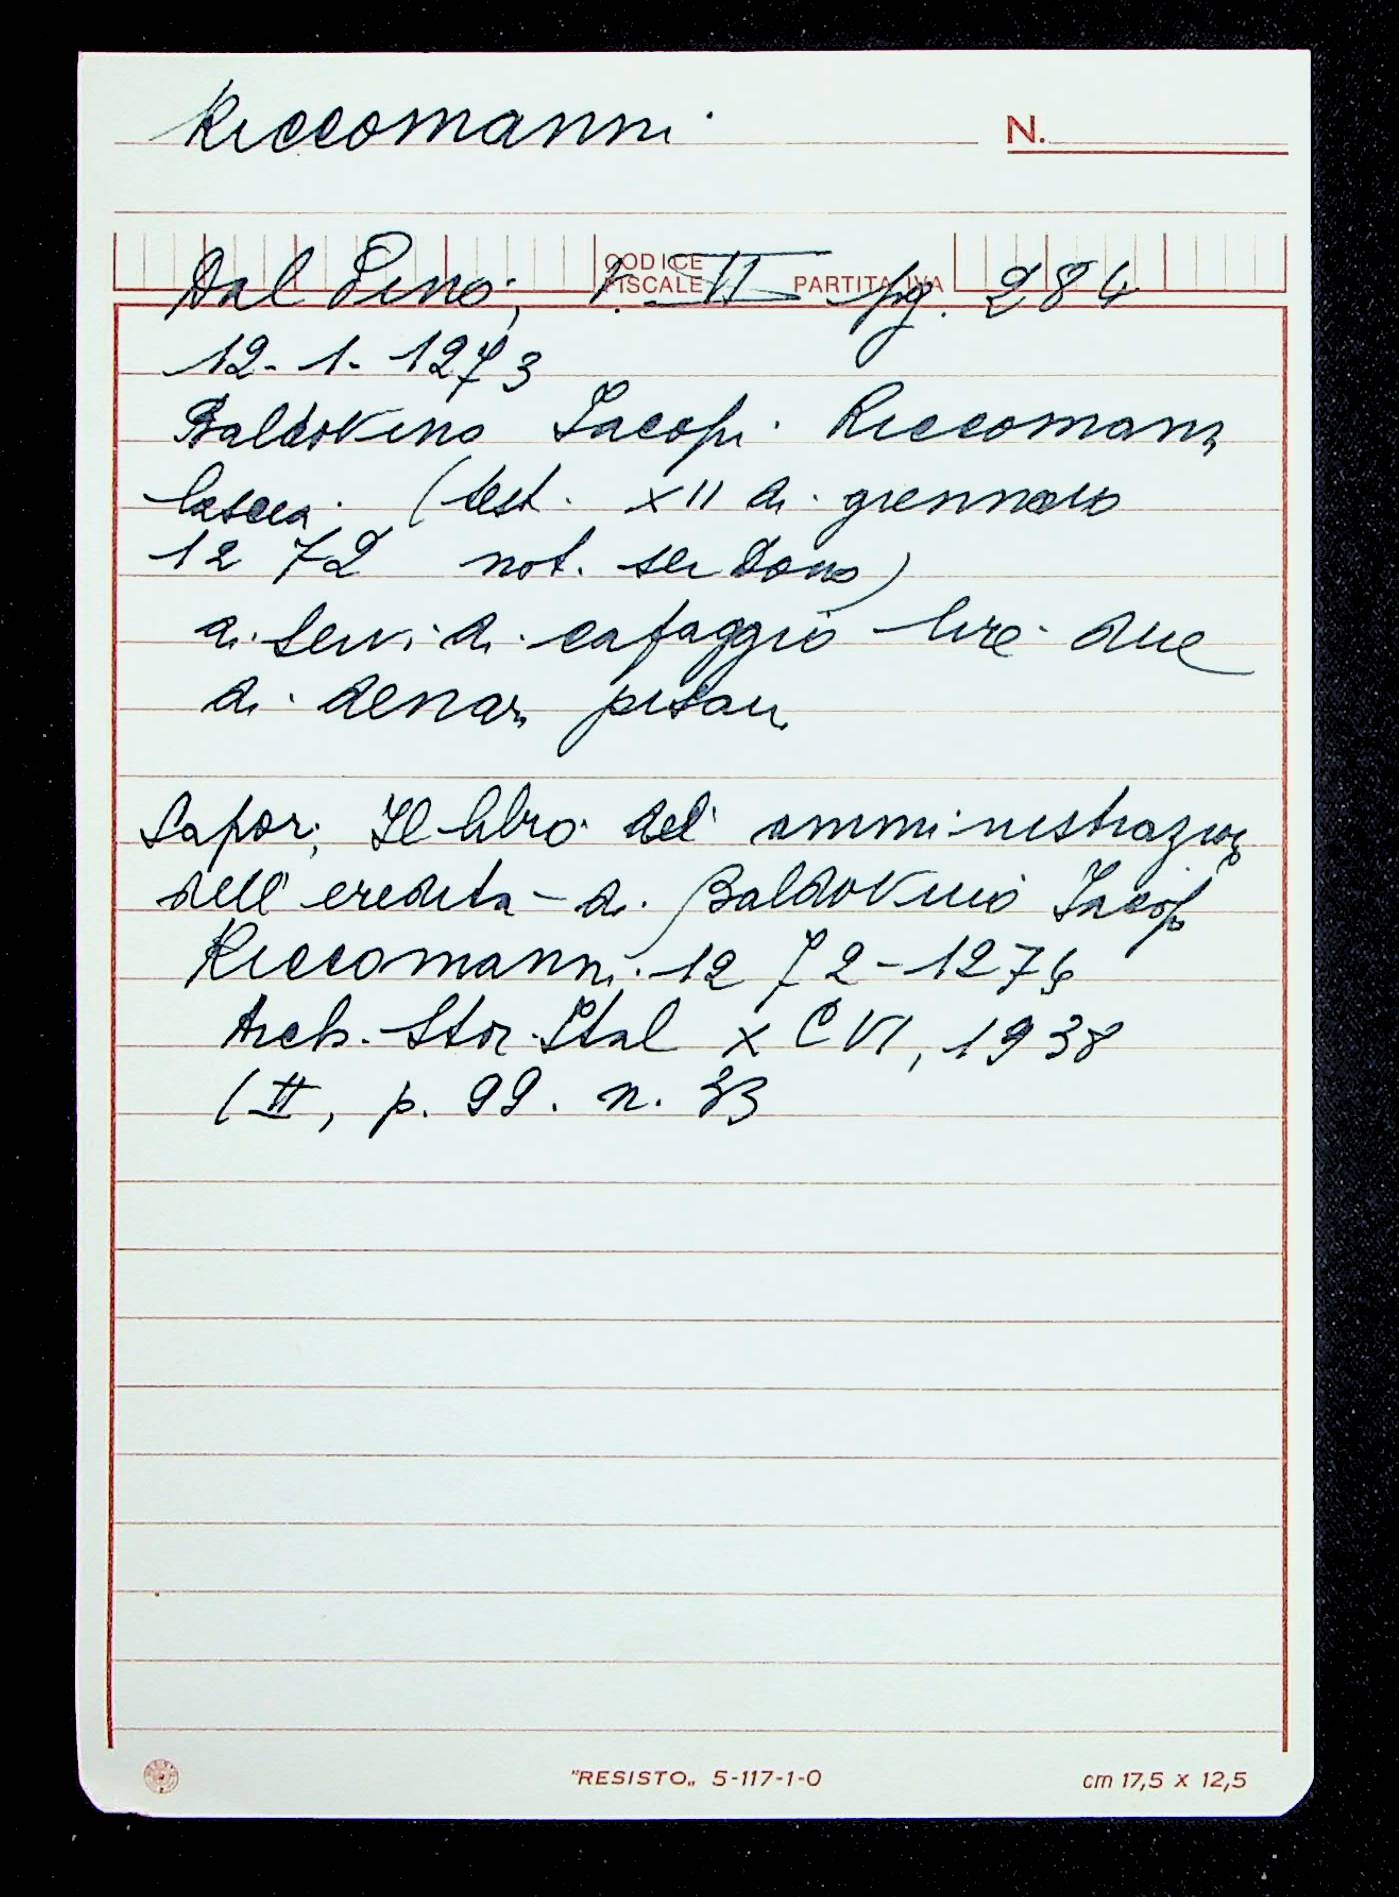 Riccomanni
N.
CODICE FISCALE
PARTITA IVA
Dal Pino, v. II pg. 284
12-1-1273
Baldovino Iacopi Riccomanni
lascia (test. XII di gennaio
1272 not. ser Dono)
ai Servi di Cafaggio lire due
di denari pisani
Sapori, Il libro del amministrazion
dell'eredita di Baldovino Iacop
Riccomanni 1272-1274
Arch. Stor. Ital XCVI, 1938
(II, p. 99. n. 33
"RESISTO„ 5-117-1-0
cm 17,5 x 12,5